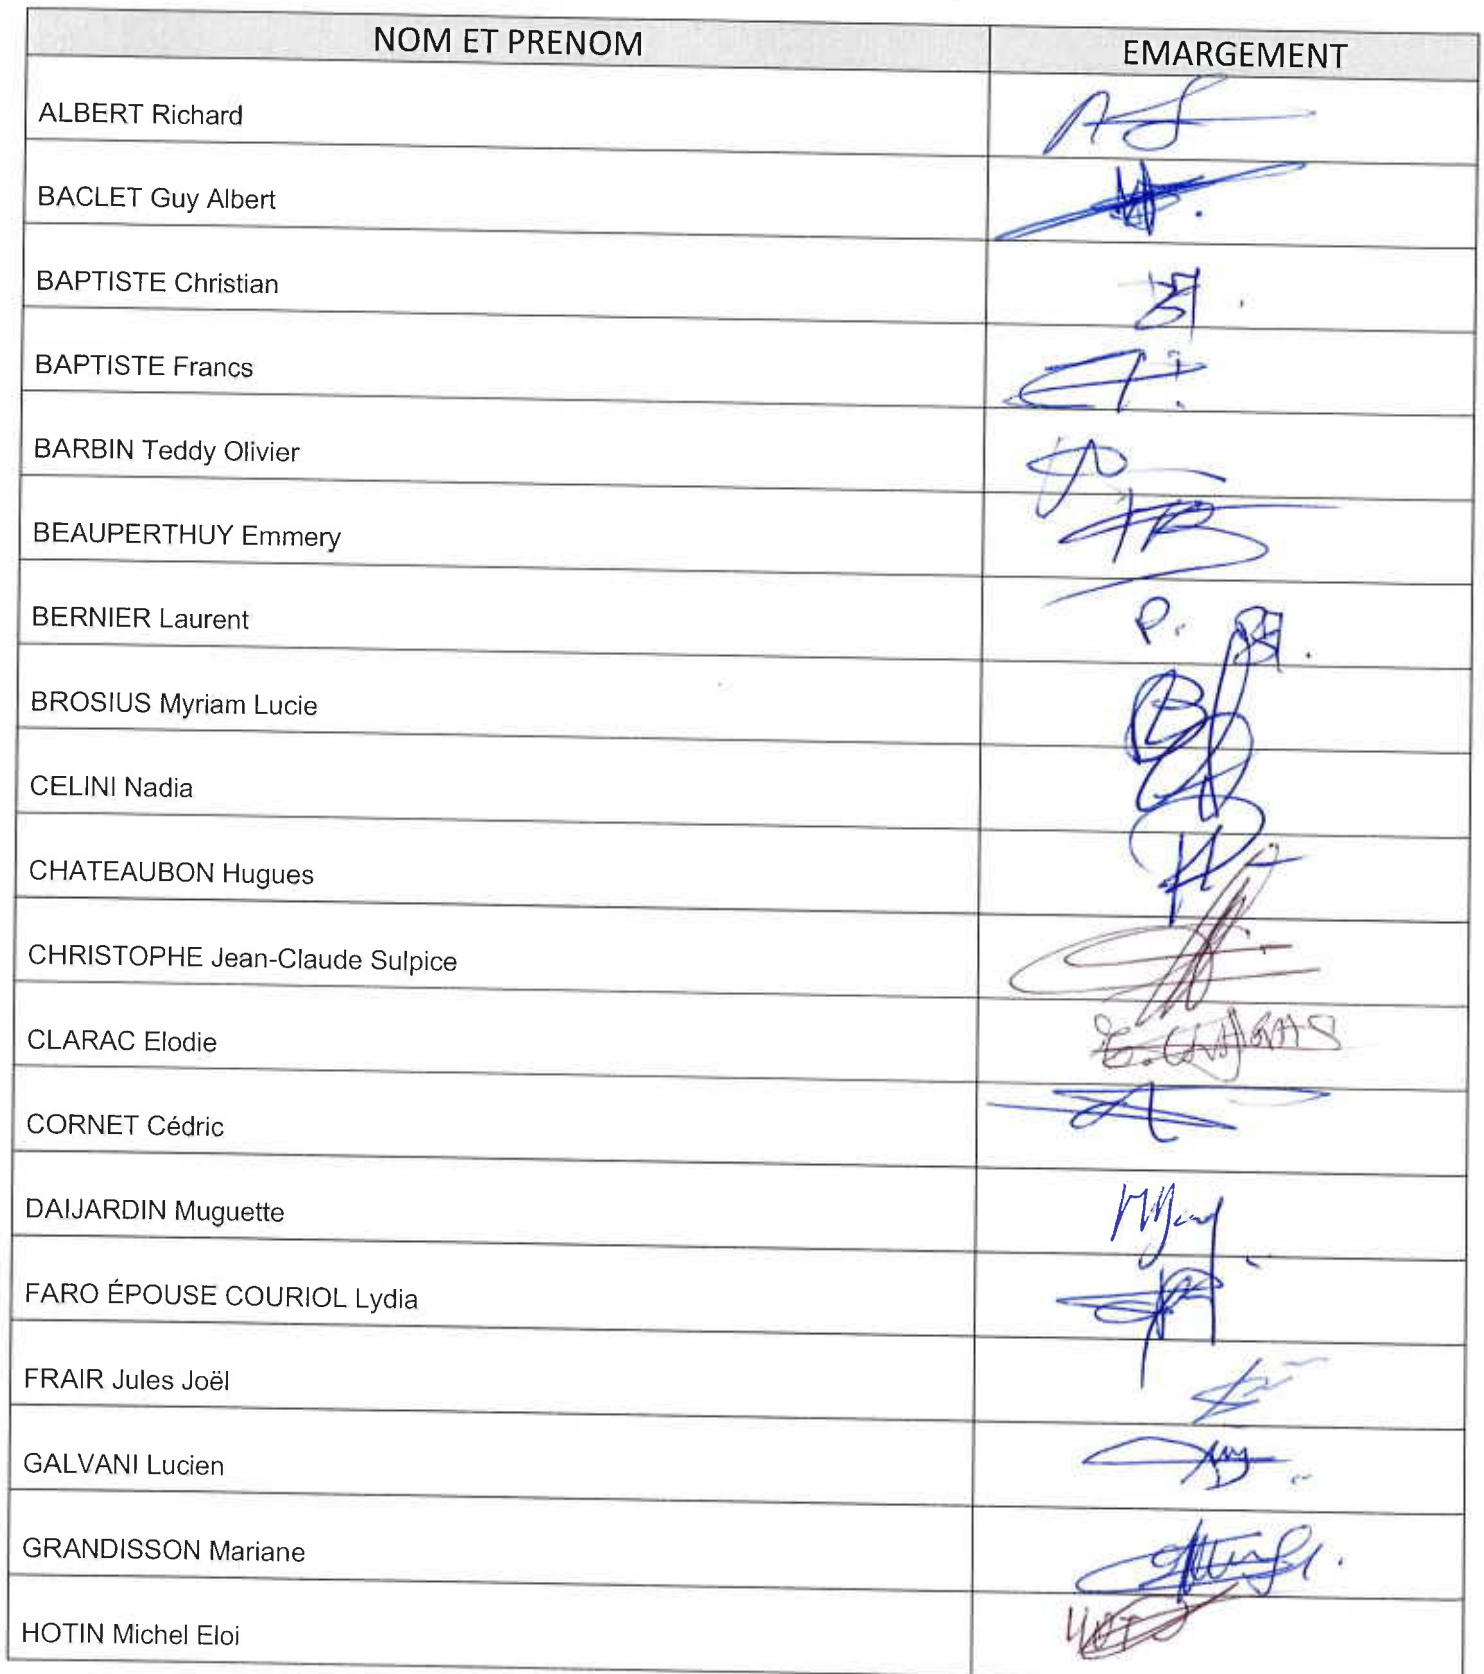 NOM ET PRENOM EMARGEMENT
ALBERT Richard
BACLET Guy Albert
BAPTISTE Christian
BAPTISTE Francs
BARBIN Teddy Olivier
BEAUPERTHUY Emmery
BERNIER Laurent P.
BROSIUS Myriam Lucie
CELINI Nadia
CHATEAUBON Hugues
CHRISTOPHE Jean-Claude Sulpice
CLARAC Elodie
CORNET Cédric
DAIJARDIN Muguette
FARO ÉPOUSE COURIOL Lydia
FRAIR Jules Joël
GALVANI Lucien
GRANDISSON Mariane
HOTIN Michel Eloi